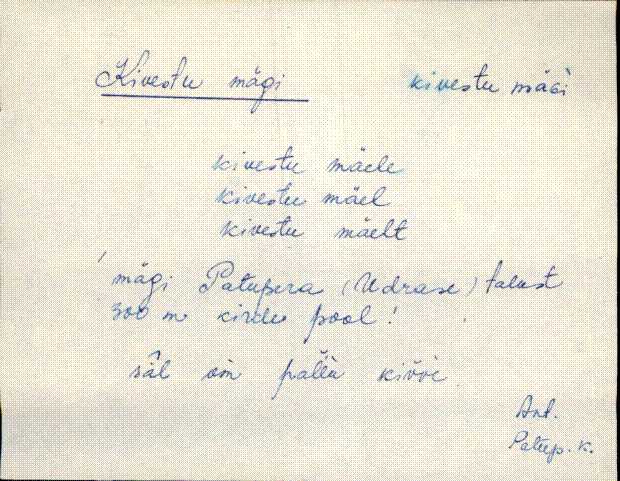 Kivestu mägi kivestu mäg̀i
kivestu mäele
kivestu mäel
kivestu mäelt
mägi Patupera (Udrase) talust
300 m kirde pool!
säl om pallu kivve
Ant.
Patup. k.